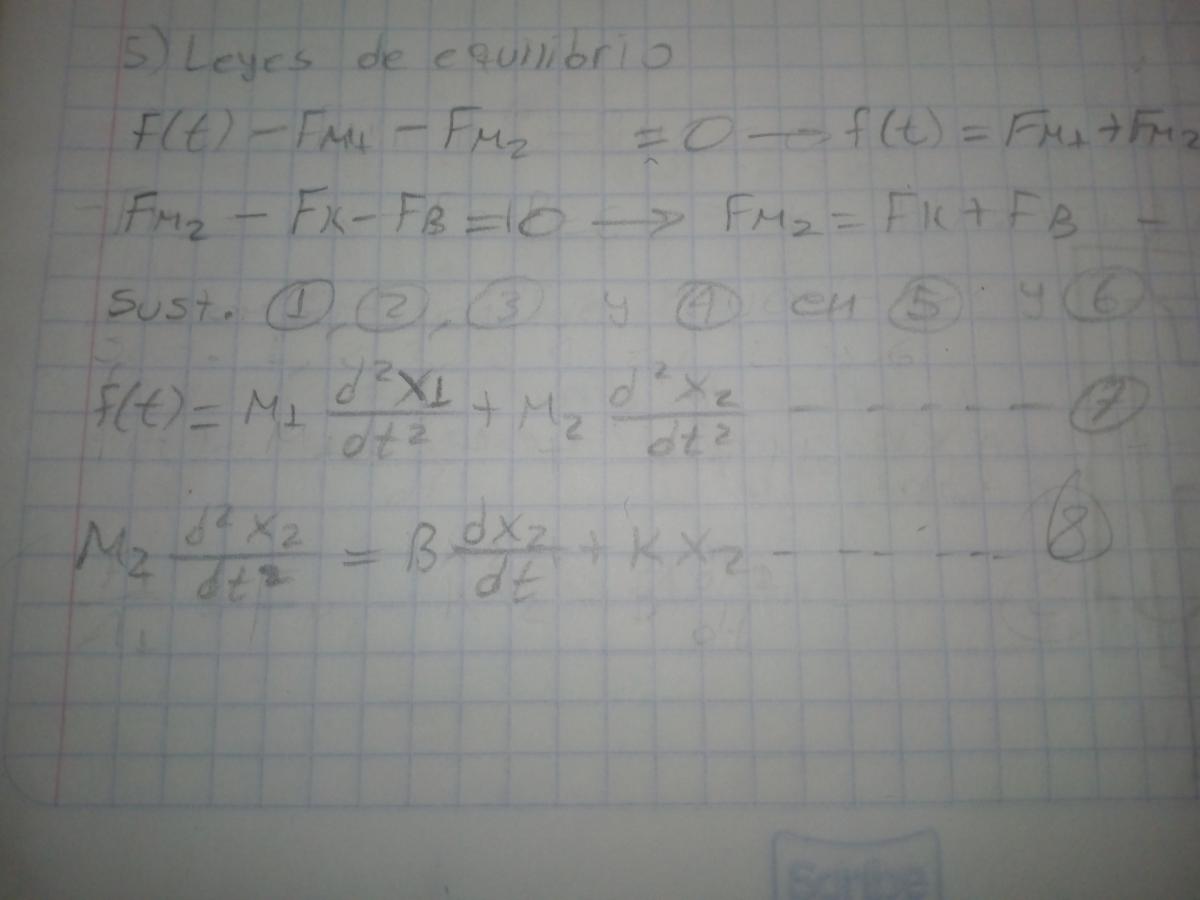 5) Leyes de equilibrio
f(t) - FM1 - FM2 = 0 → f(t) = FM1 + FM2
FM2 - FK - FB = 0 → FM2 = FK + FB -
Sust. ①, ②, ③ y ④ en ⑤ y ⑥
f(t) = M1 d²x1/dt² + M2 d²x2/dt² - - - - - - ⑦
M2 d²x2/dt² = B dx2/dt + K x2 - - - - - - ⑧
Scribe